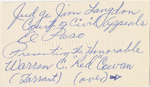 Judge Jim Langdon
Court of Civil Appeals
El Paso
Presenting the Honorable
Warren C. Red Cowan
(Tarrant) (over) →